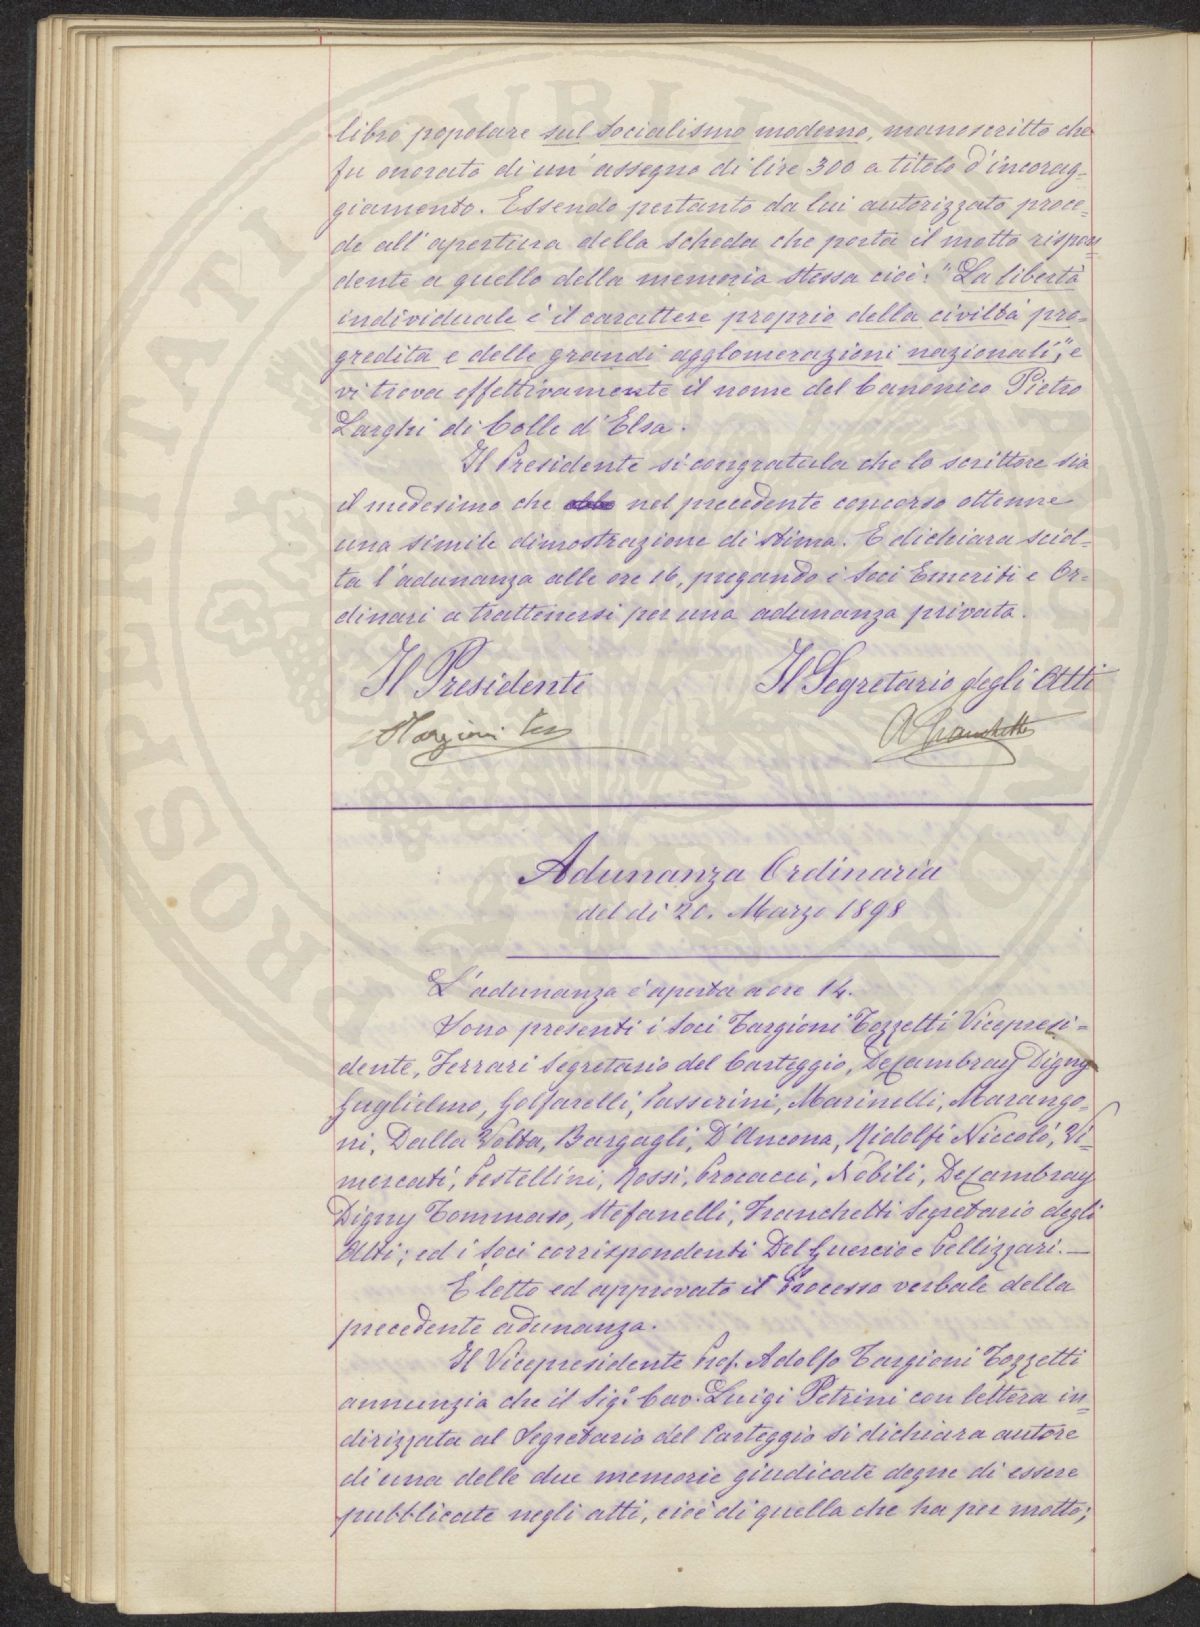 libro popolare sul Socialismo moderno, manoscritto che
fu onorato di un' assegno di lire 300 a titolo d'incorag=
giamento. Essendo pertanto da lui autorizzato proce=
de all'apertura della scheda che porta il motto rispon=
dente a quello della memoria stessa cioè: "La libertà
individuale è il carattere proprio della civiltà pro=
gredita e delle grandi agglomerazioni nazionali", e
vi trova effettivamente il nome del Canonico Pietro
Larghi di Colle d'Elsa.
Il Presidente si congratula che lo scrittore sia
il medesimo che nel precedente concorso ottenne
una simile dimostrazione di stima. E dichiara sciol=
ta l'adunanza alle ore 16, pregando i Soci Emeriti e Or=
dinari a trattenersi per una adunanza privata.
Il Presidente
Il Segretario degli Atti
A Franchetti
Adunanza Ordinaria
del dì 20. Marzo 1898
L'adunanza é aperta a ore 14.
Sono presenti i Soci Targioni Tozzetti Vicepresi=
dente, Ferrari Segretario del Carteggio, De Cambray Digny
Guglielmo, Golfarelli, Passerini, Marinelli, Marango=
ni, Dalla Volta, Bargagli, D'Ancona, Ridolfi Niccolò, Vi=
mercati, Pestellini, Rossi, Procacci, Nobili, De Cambray
Digny Tommaso, Stefanelli, Franchetti Segretario degli
Atti; ed i Soci corrispondenti Del Guercio e Pellizzari. —
È letto ed approvato il Processo verbale della
precedente adunanza.
Il Vicepresidente Prof. Adolfo Targioni Tozzetti
annunzia che il Sigr Cav. Luigi Petrini con lettera in=
dirizzata al Segretario del Carteggio si dichiara autore
di una delle due memorie giudicate degne di essere
pubblicate negli atti, cioè di quella che ha per motto;